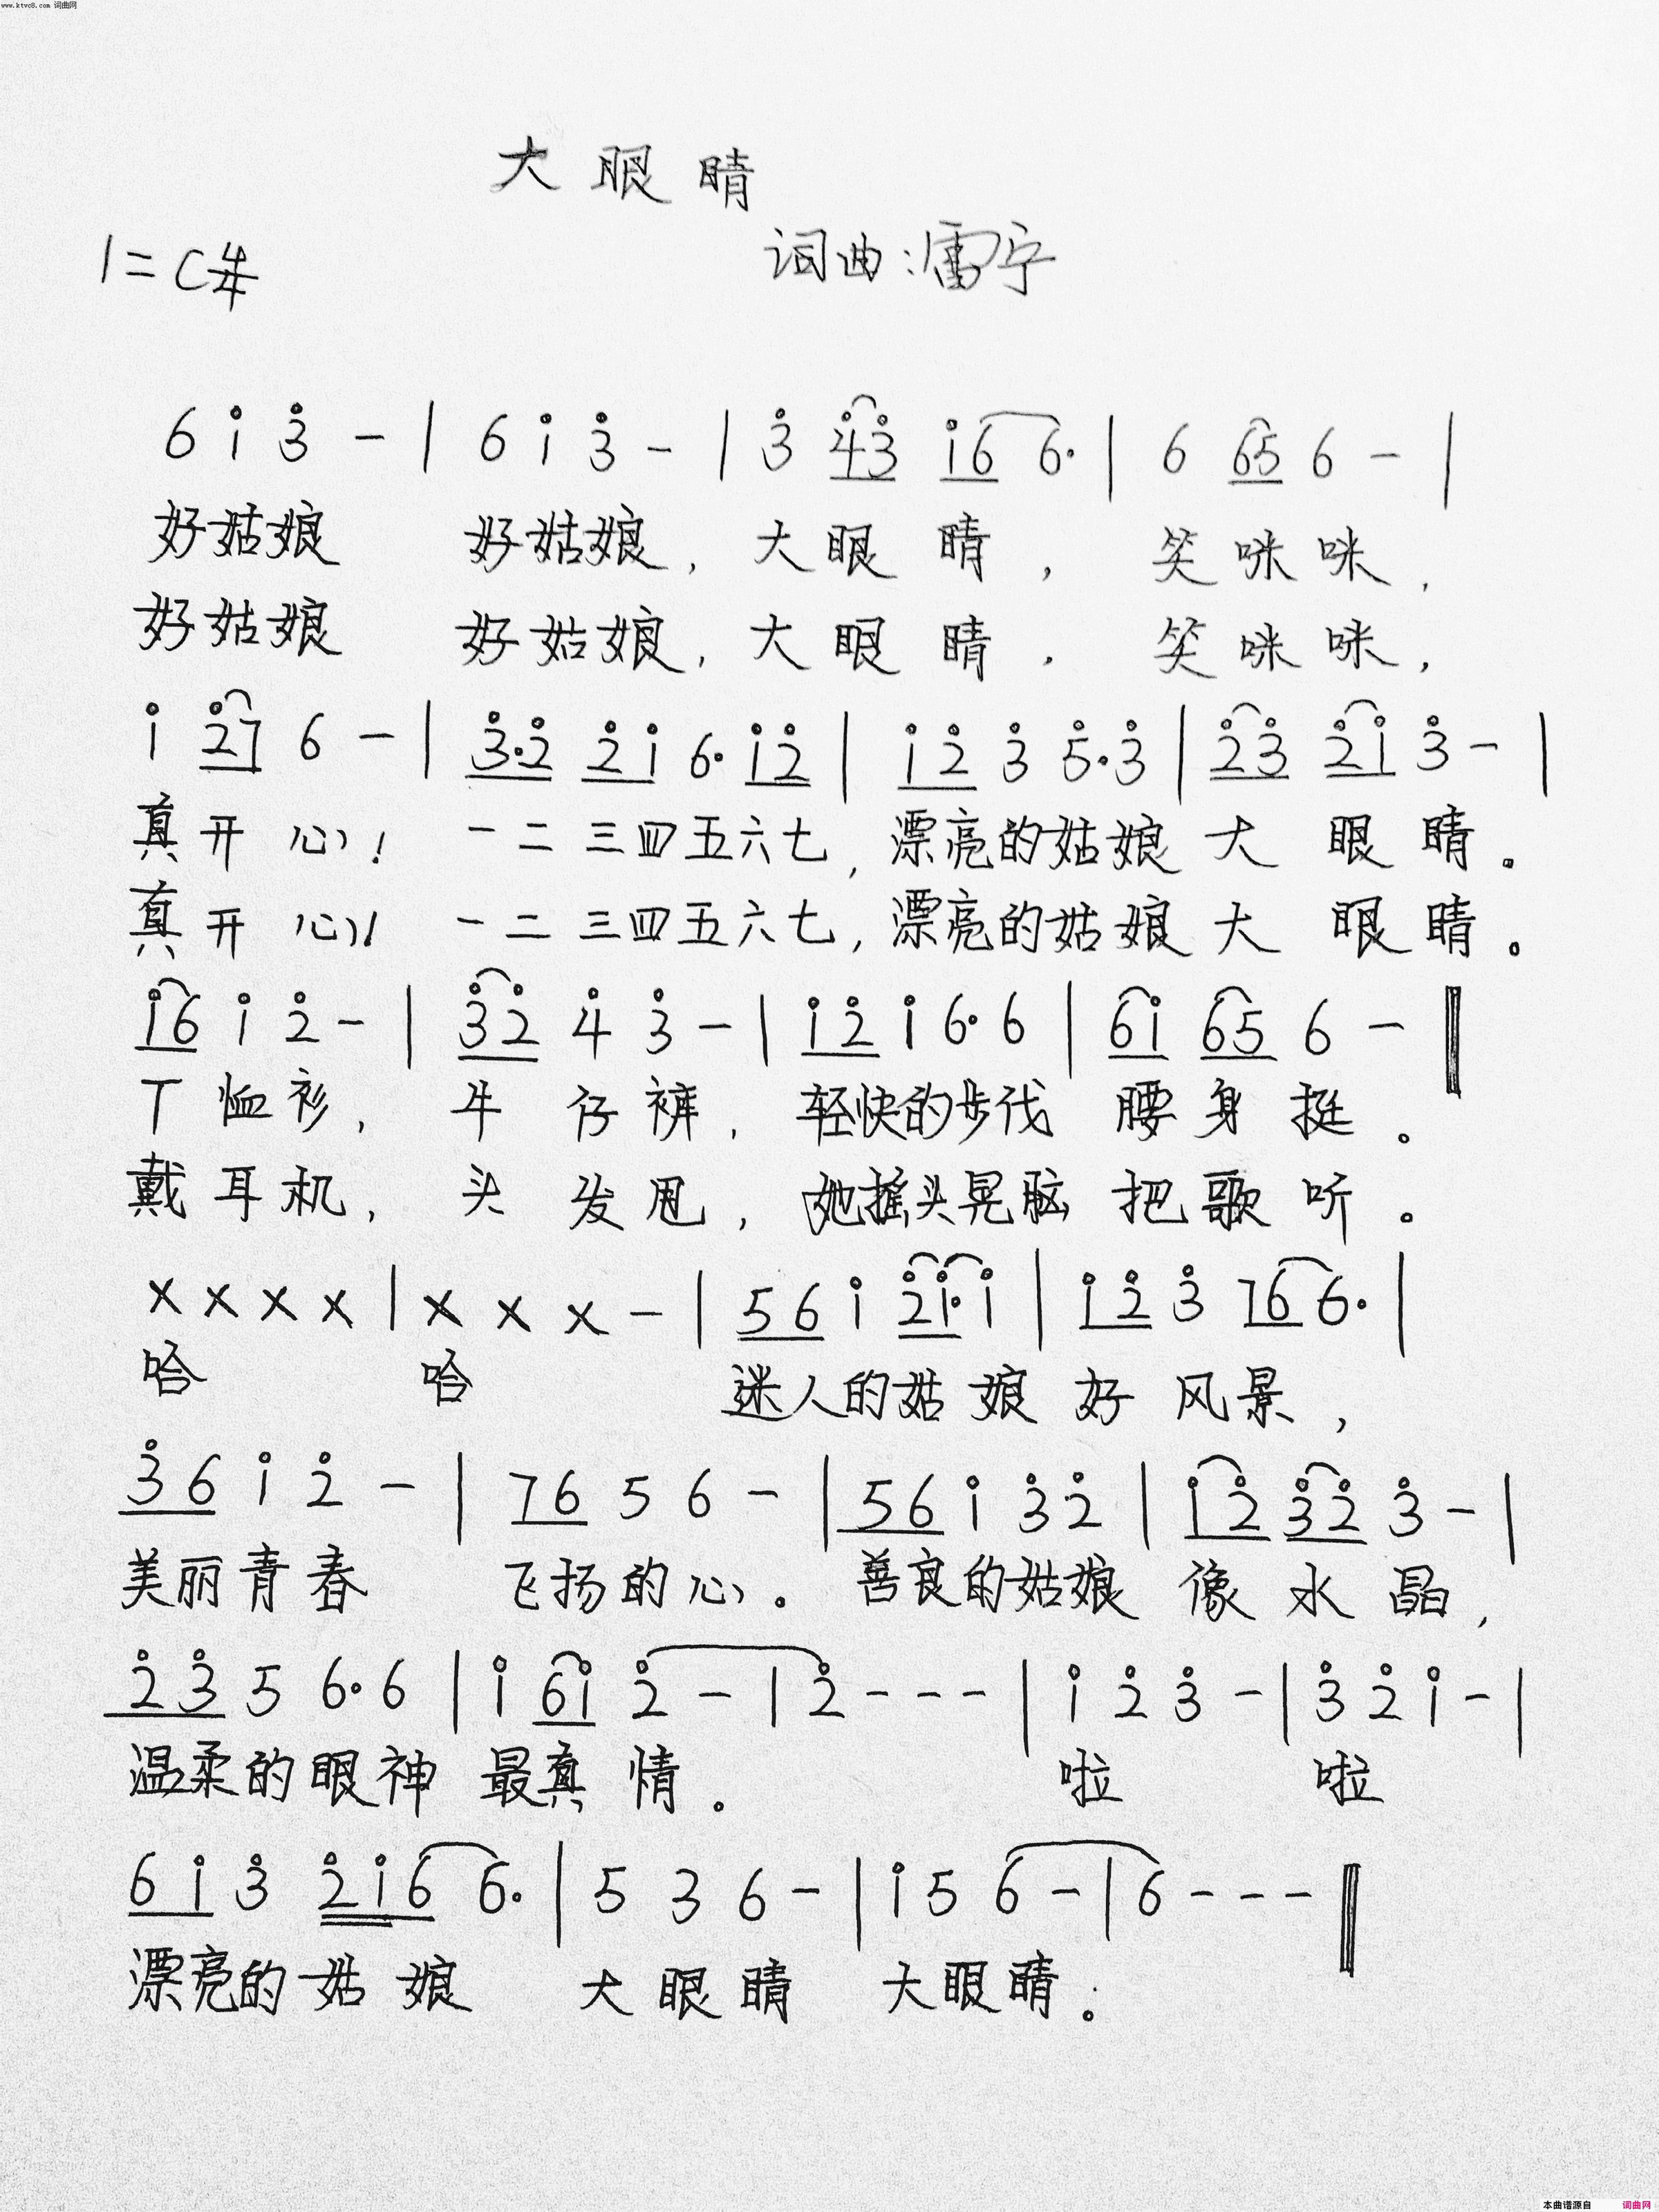 www.ktvc8.com 词曲网
大眼睛
1=C 4/4
词曲:雷宁
6 i̇ 3̇ - | 6 i̇ 3̇ - | 3̇ 4̇3̇ i̇6 6· | 6 65 6 - |
好姑娘 好姑娘,大眼睛,笑咪咪,
好姑娘 好姑娘,大眼睛.笑咪咪,
i̇ 2̇7 6 - | 3̇·2̇ 2̇i̇ 6· i̇2̇ | i̇2̇ 3̇ 5̇·3̇ | 2̇3̇ 2̇i̇ 3̇ - |
真开心! 一二三四五六七,漂亮的姑娘大眼睛。
真开心! 一二三四五六七,漂亮的姑娘大眼睛。
i̇6 i̇ 2̇ - | 3̇2̇ 4̇ 3̇ - | i̇2̇ i̇ 6· 6 | 6i̇ 65 6 - ‖
T恤衫,牛仔裤,轻快的步伐 腰身挺。
戴耳机,头发甩,她摇头晃脑 把歌听。
x x x x | x x x - | 56 i̇ 2̇i̇· i̇ | i̇2̇ 3̇ 76 6· |
哈 哈 迷人的姑娘好风景,
3̇6 i̇ 2̇ - | 76 5 6 - | 56 i̇ 3̇2̇ | i̇2̇ 3̇2̇ 3̇ - |
美丽青春 飞扬的心。善良的姑娘像水晶,
2̇3̇ 5 6· 6 | i̇ 6i̇ 2̇ - | 2̇ - - - | i̇ 2̇ 3̇ - | 3̇ 2̇ i̇ - |
温柔的眼神最真情。 啦 啦
6i̇ 3̇ 2̇i̇6 6· | 5 3 6 - | i̇ 5 6 - | 6 - - - ‖
漂亮的姑娘 大眼睛 大眼睛。
本曲谱源自 词曲网